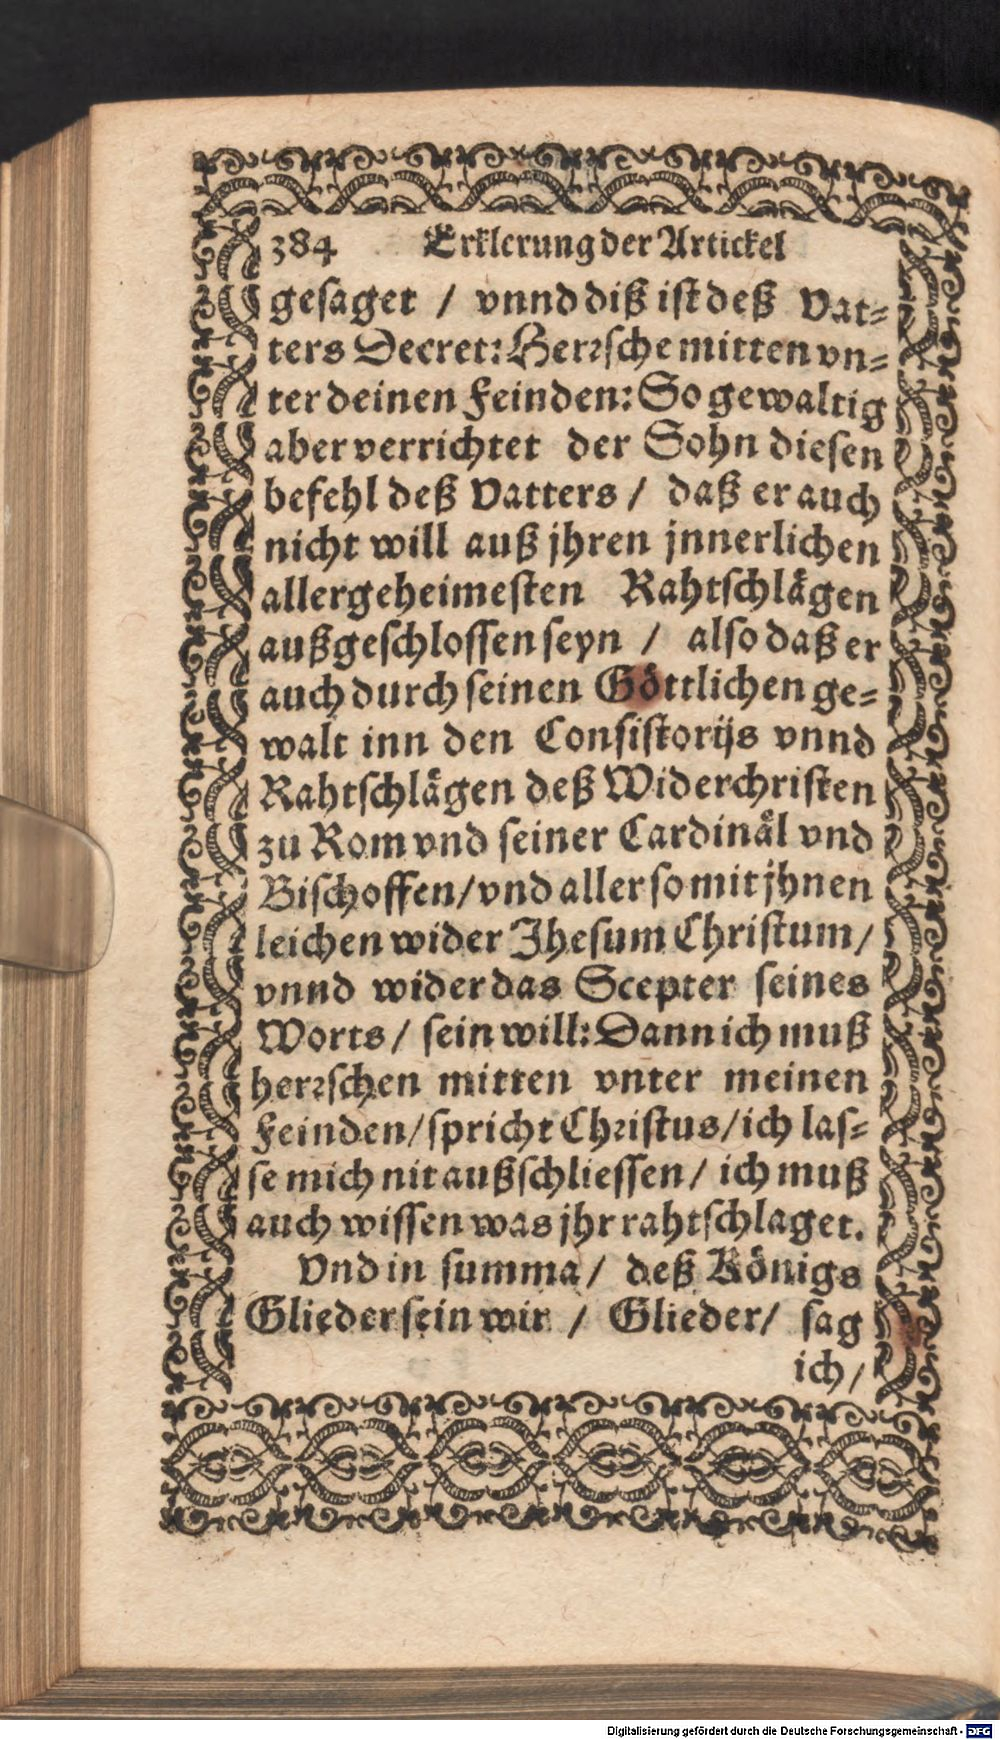 384 Erklerung der Artickel
gesaget / vnnd diß ist deß Vat⸗
ters Decret: Herꝛsche mitten vn⸗
ter deinen Feinden: So gewaltig
aber verrichtet der Sohn diesen
befehl deß Vatters / daß er auch
nicht will auß jhren jnnerlichen
allergeheimesten Rahtschlägen
außgeschlossen seyn / also daß er
auch durch seinen Göttlichen ge⸗
walt inn den Consistorijs vnnd
Rahtschlägen deß Widerchristen
zu Rom vnd seiner Cardinäl vnd
Bischoffen / vnd aller so mit jhnen
leichen wider Jhesum Christum /
vnnd wider das Scepter seines
Worts / sein will: Dann ich muß
herꝛschen mitten vnter meinen
Feinden / spricht Chꝛistus / ich las⸗
se mich nit außschliessen / ich muß
auch wissen was jhr rahtschlaget.
Vnd in summa / deß Königs
Glieder sein wir / Glieder / sag
ich /
Digitalisierung gefördert durch die Deutsche Forschungsgemeinschaft - DFG